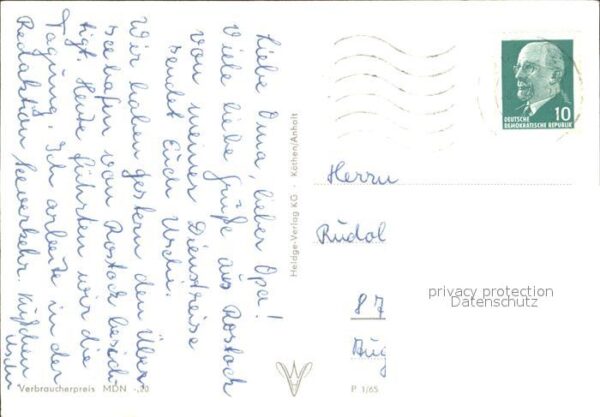 Liebe Oma, lieber Opa!
Viele liebe Grüße aus Rostock
von meiner Dienstreise
sendet Euch Uschi.
Wir haben gestern den Über-
seehafen von Rostock besich-
tigt. Heute führten wir die
Tagung. Ich arbeite in der
Redaktion Seeverkehr. Küßchen
Uschi
Verbraucherpreis MDN -,20
Heldge-Verlag KG · Köthen/Anhalt
P 1/65
10
DEUTSCHE
DEMOKRATISCHE REPUBLIK
Herrn
Rudol
87
Aug
privacy protection
Datenschutz